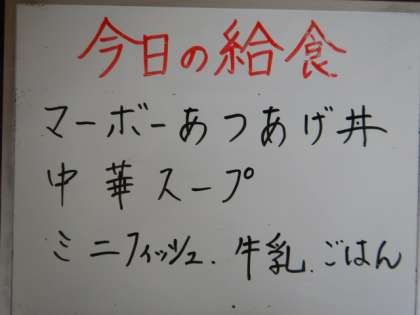 今日の給食
マーボーあつあげ丼
中華スープ
ミニフィッシュ.牛乳.ごはん